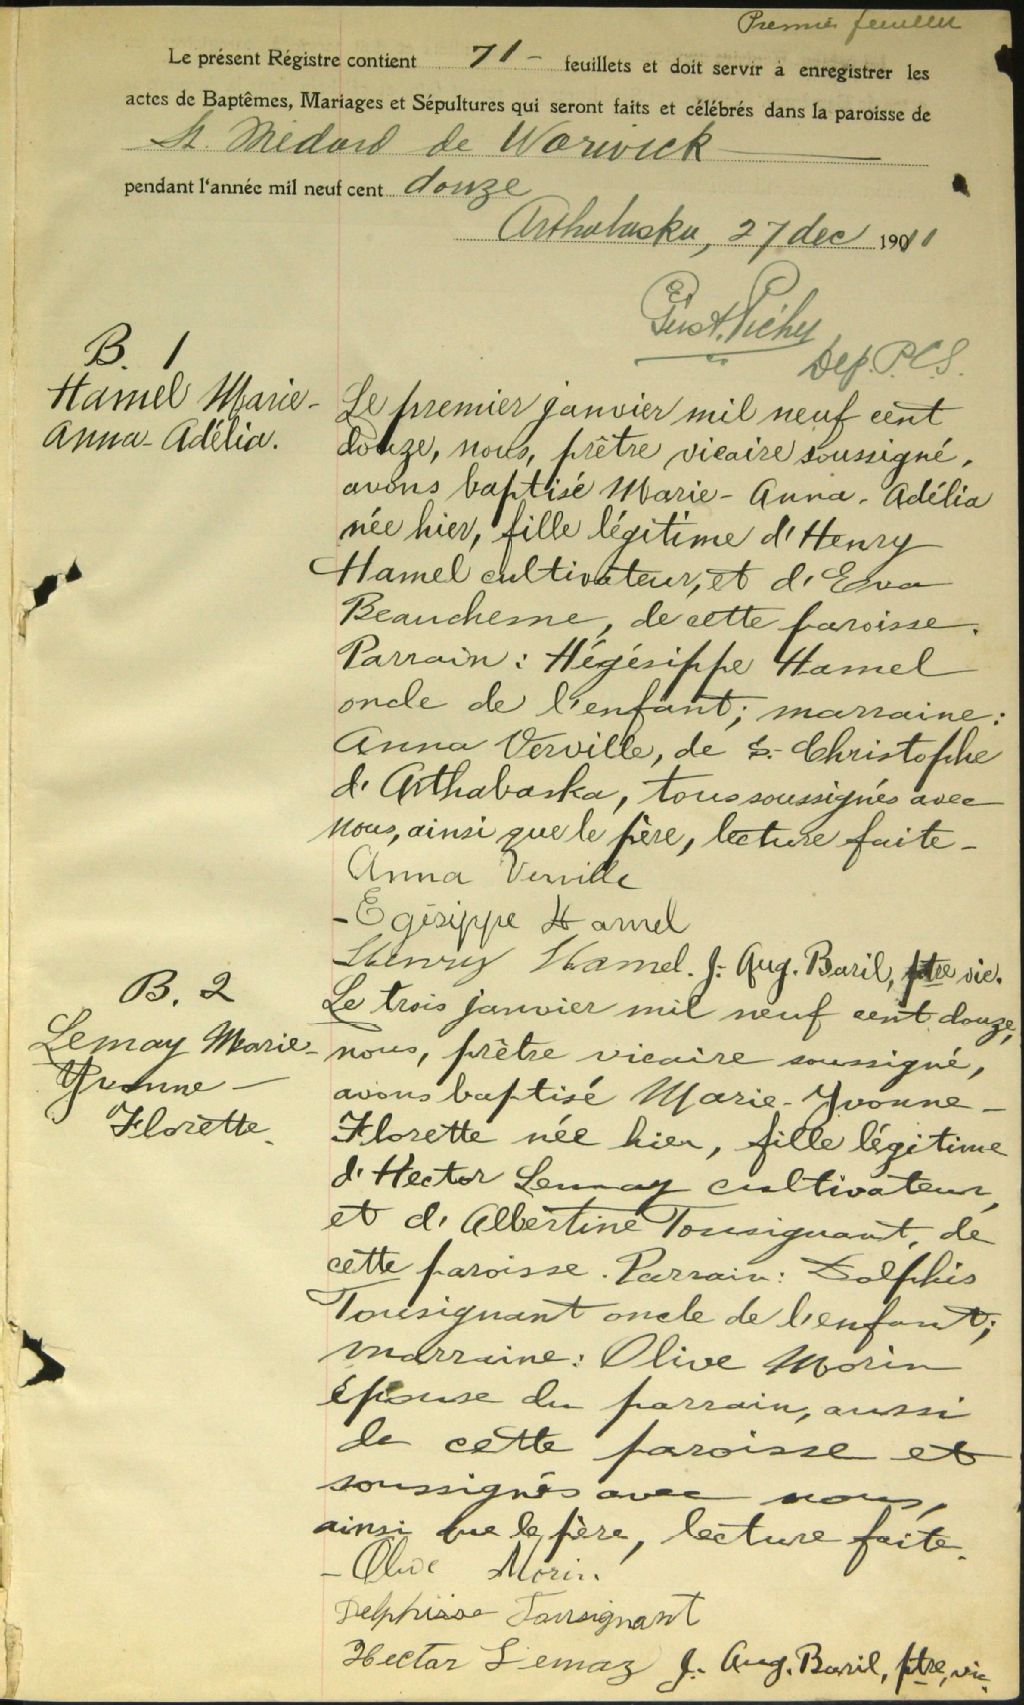 Premier feuillet
Le présent Régistre contient 71 - feuillets et doit servir à enregistrer les
actes de Baptêmes, Mariages et Sépultures qui seront faits et célébrés dans la paroisse de
St. Médard de Warwick
pendant l'année mil neuf cent douze
Arthabaska, 27 dec 1911
Gust. Pichy
Dep. P.C.S.
B. 1
Hamel Marie-
Anna-Adélia.
Le premier janvier mil neuf cent
douze, nous, prêtre vicaire soussigné,
avons baptisé Marie-Anna-Adélia
née hier, fille légitime d'Henry
Hamel cultivateur, et d'Eva
Beauchesne, de cette paroisse.
Parrain: Hégésippe Hamel
oncle de l'enfant; marraine:
Anna Verville, de S.-Christophe
d'Arthabaska, tous soussignés avec
nous, ainsi que le père, lecture faite-
Anna Verville
-Egésippe Hamel
Henry Hamel. J. Aug. Baril, ptre vic.
B. 2
Lemay Marie-
Yvonne-
Florette.
Le trois janvier mil neuf cent douze,
nous, prêtre vicaire soussigné,
avons baptisé Marie-Yvonne-
Florette née hier, fille légitime
d'Hector Lemay cultivateur,
et d'Albertine Tousignant, de
cette paroisse. Parrain: Dolphis
Tousignant oncle de l'enfant;
marraine: Olive Morin
épouse du parrain, aussi
de cette paroisse et
soussignés avec nous,
ainsi que le père, lecture faite.
-Olive Morin
Delphisse Tousignant
Hector Lemay J. Aug. Baril, ptre, vic.